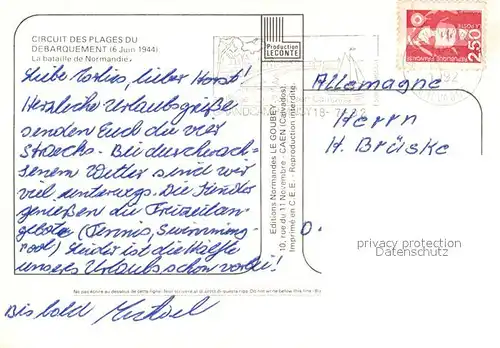 CIRCUIT DES PLAGES DU
DEBARQUEMENT (6 Juin 1944)
La bataille de Normandie
Production
LECONTE
REPUBLIQUE FRANÇAISE
LA POSTE
2,50
Liebe lieber Horst!
Herzliche Urlaubsgrüße
senden Euch die vier
Bei durchwach-
senem Wetter sind wir
viel unterwegs. Die Kinder
genießen die Freizeitan-
gebote (Tennis, Swimming-
pool) Leider ist die Hälfte
unseres Urlaubs schon vorbei!
Bis bald
Allemagne
Herrn
H. Brüske
D.
Editions Normandes LE GOUBEY
10, rue du 11 Novembre - CAEN (Calvados)
Imprimé en C.E.E. - Reproduction interdite
privacy protection
Datenschutz
Ne pas écrire au dessous de cette ligne. Do not write below this line